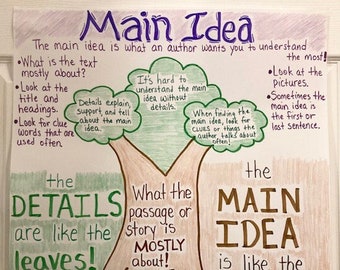 Main Idea
The main idea is what an author wants you to understand
the most!
•What is the text
mostly about?
•Look at the
title and
headings.
•Look for clue
words that are
used often.
It's hard to
understand the main
idea without
details.
Details explain,
support, and tell
about the main
idea.
When finding the
main idea, look for
CLUES or things the
author talks about
often!
•Look at the
pictures.
•Sometimes the
main idea is
the first or
last sentence.
the
DETAILS
are like the
leaves!
What the
passage or
story is
MOSTLY
about!
the
MAIN
IDEA
is like the